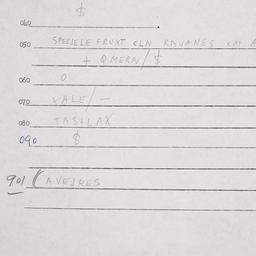 $
040
050 SPECIELE FRUXT CLN RAVANES
+ OMERN/ $
060 O
070 VALE/ —
080 TAS+LAX
090 $
901 (AVEJRES